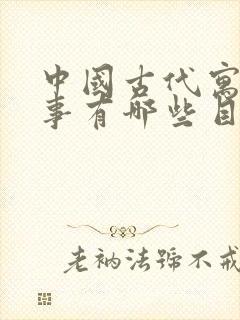 中國古代寓
事有哪些目
老衲法號不戒